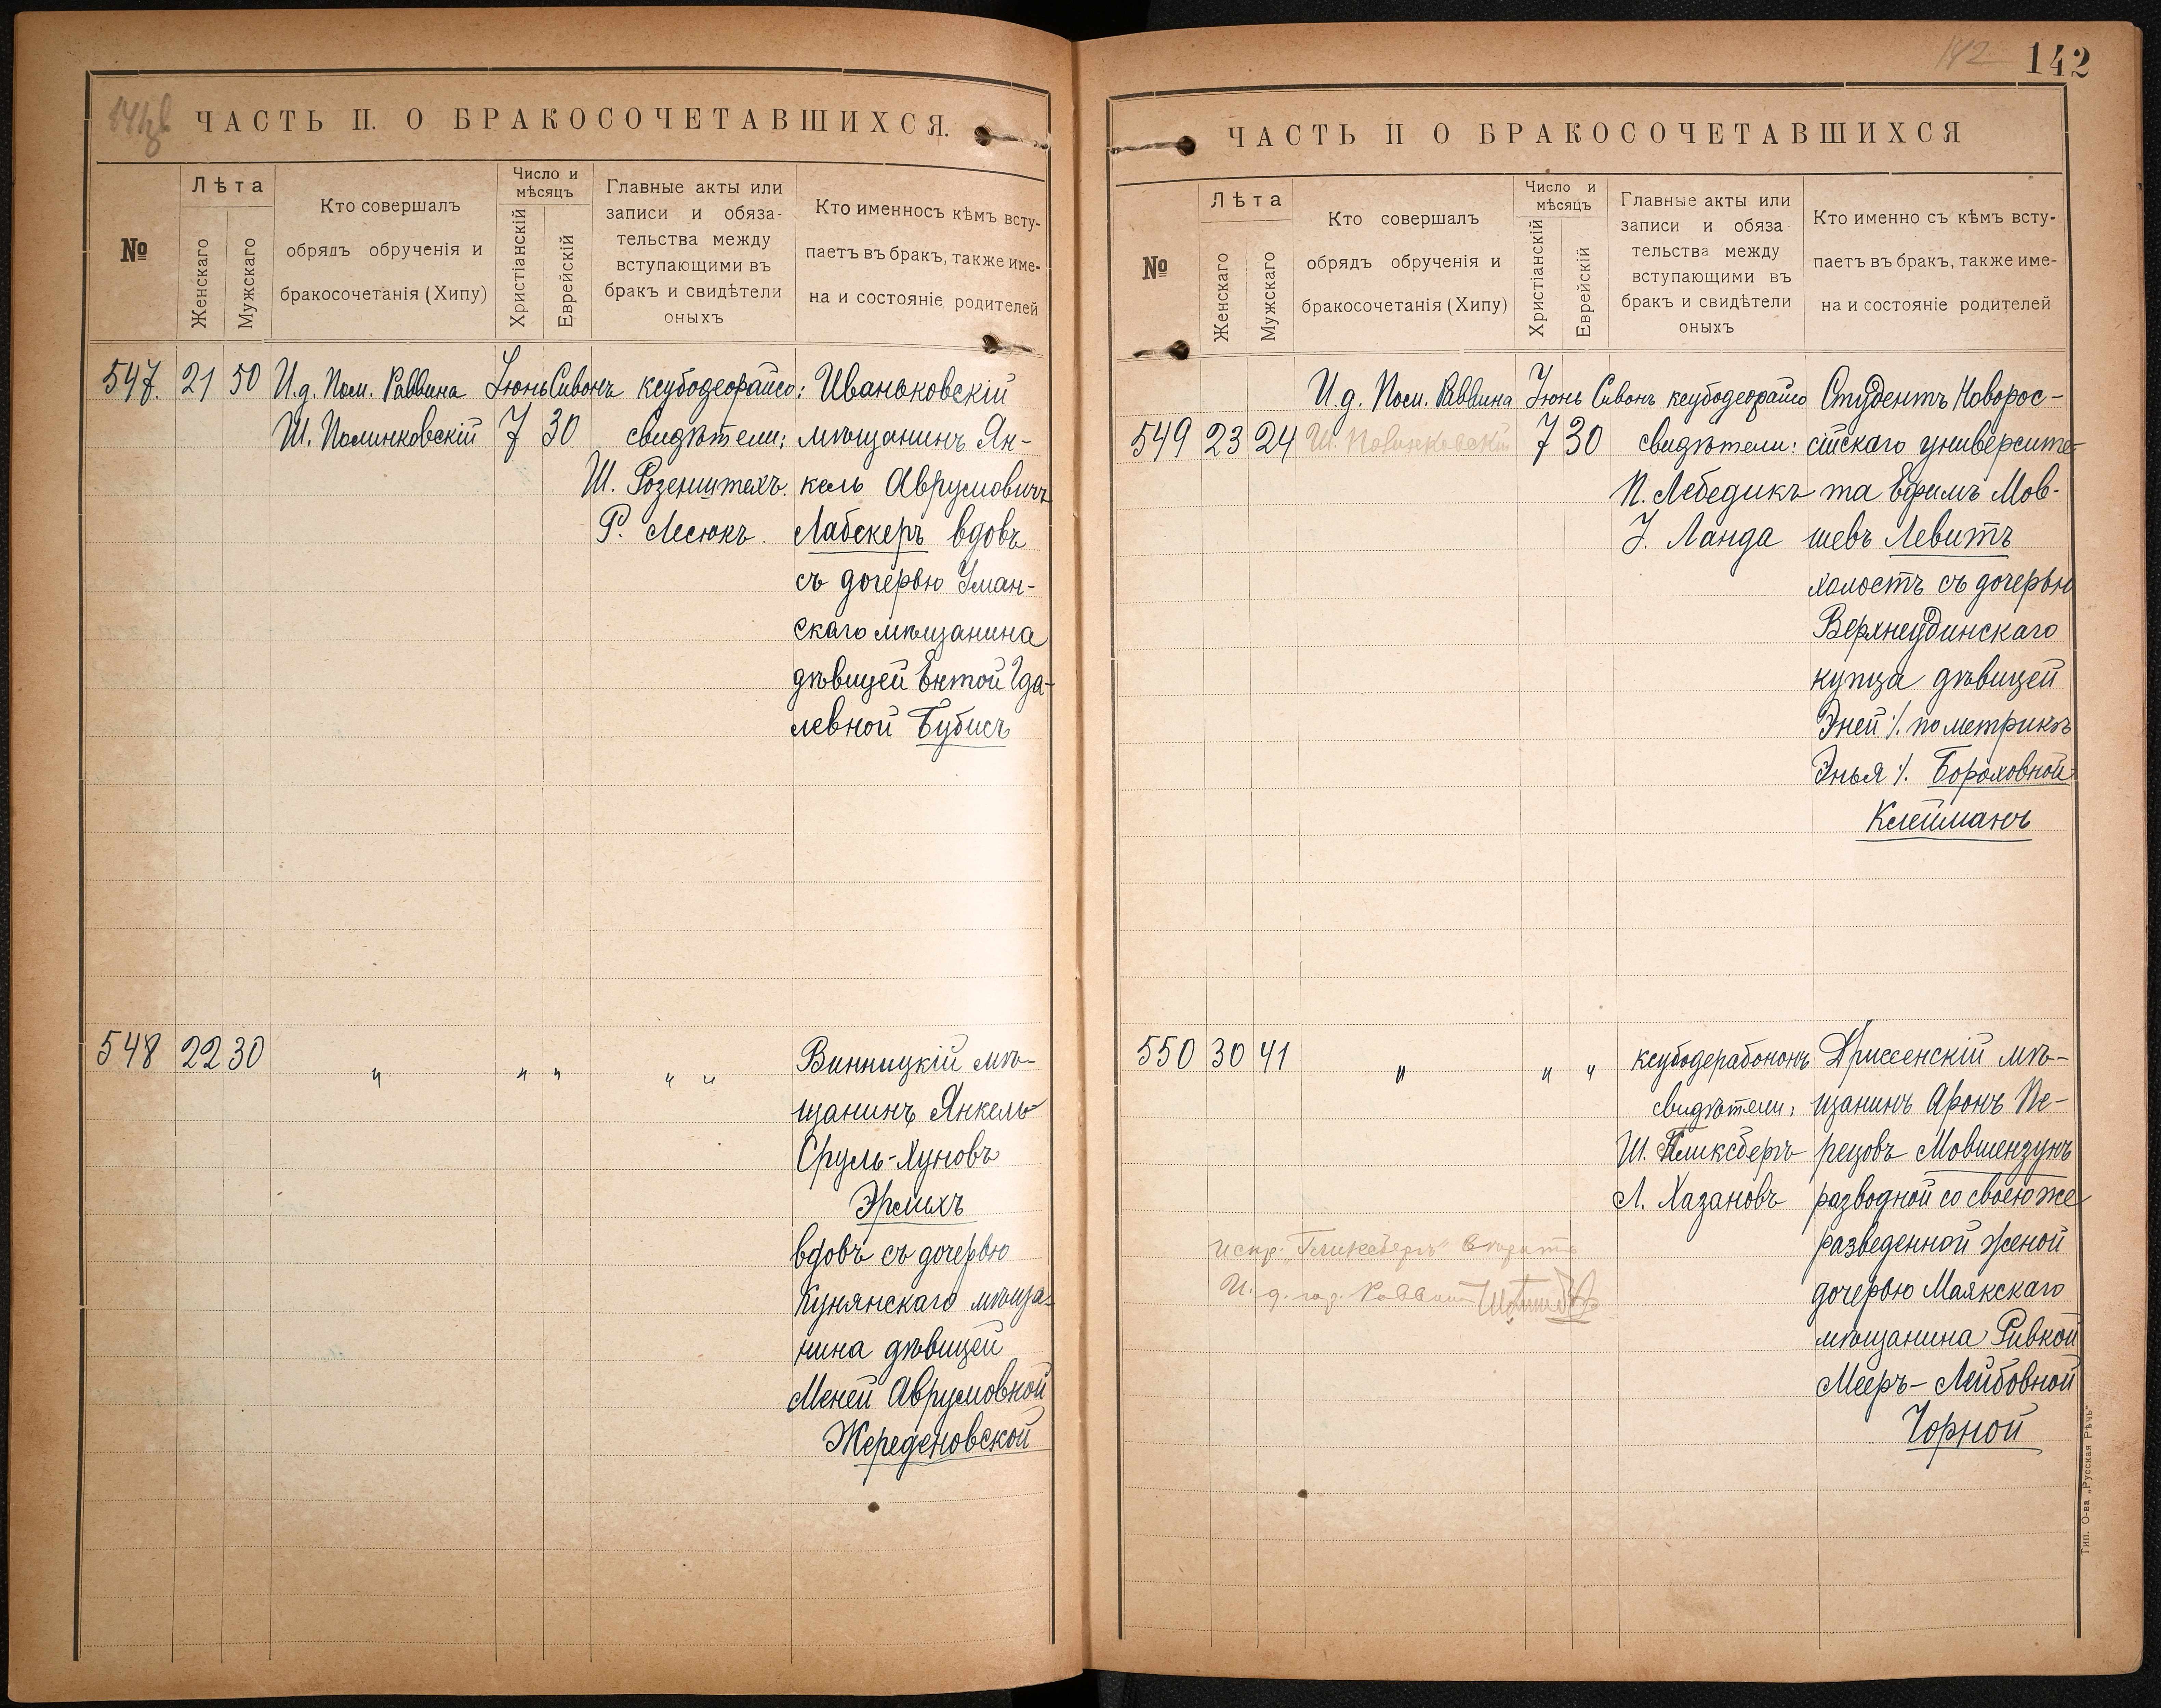 ЧАСТЬ II. О БРАКОСОЧЕТАВШИХСЯ.
№
Лѣта
Женскаго
Мужскаго
Кто совершалъ
обрядъ обрученія и
бракосочетанія (Хипу)
Число и
мѣсяцъ
Христіанскій
Еврейскій
Главные акты или
записи и обяза-
тельства между
вступающими въ
бракъ и свидѣтели
оныхъ
Кто именносъ кѣмъ всту-
паетъ въ бракъ, также име-
на и состояніе родителей
547. 21 50 И.д. Пом. Раввина Іюнь Сивонъ ксубодеорайсо: Иваньковскій
Ш. Полинковскій 7 30 свидѣтели: мѣщанинъ Ян-
Ш. Розенштехъ. кель Аврумовичъ
Р. Лесюкъ. Лабскеръ вдовъ
съ дочерью Уман-
скаго мѣщанина
дѣвицей Ентой Іда-
левной Бубисъ
548 22 30 " " " " " Винницкій мѣ-
щанинъ Янкель-
Сруль-Хуновъ
Эрлихъ
вдовъ съ дочерью
Кунянскаго мѣща-
нина дѣвицей
Меней Аврумовной
Жереденовской
142
ЧАСТЬ II О БРАКОСОЧЕТАВШИХСЯ
№
Лѣта
Женскаго
Мужскаго
Кто совершалъ
обрядъ обрученія и
бракосочетанія (Хипу)
Число и
мѣсяцъ
Христіанскій
Еврейскій
Главные акты или
записи и обяза
тельства между
вступающими въ
бракъ и свидѣтели
оныхъ
Кто именно съ кѣмъ всту-
паетъ въ бракъ, также име-
на и состояніе родителей
И.д. Пом. Раввина Іюнь Сивонъ ксубодеорайсо Студентъ Новорос-
549 23 24 Ш. Полинковскій 7 30 свидѣтели: сійскаго университе-
П. Лебедикъ та Ефимъ Мов-
І. Ланда шевъ Левитъ
холостъ съ дочерью
Верхнеудинскаго
купца дѣвицей
Эней ./. по метрикѣ
Энья ./. Бороховной
Клейманъ
550 30 41 " " " ксубодерабононъ Дриссенскій мѣ-
свидѣтели: щанинъ Аронъ Пе-
Ш. Гликсбергъ рецовъ Мовшензунъ
Л. Хазановъ разводной со своею же
разведенной женой
дочерью Маякскаго
мѣщанина Ривкой
Мееръ-Лейбовной
Чорной
испр. "Гликсбергъ" вѣрить
И. д. гор. Раввина
Тип. О-ва „Русская Рѣчь"